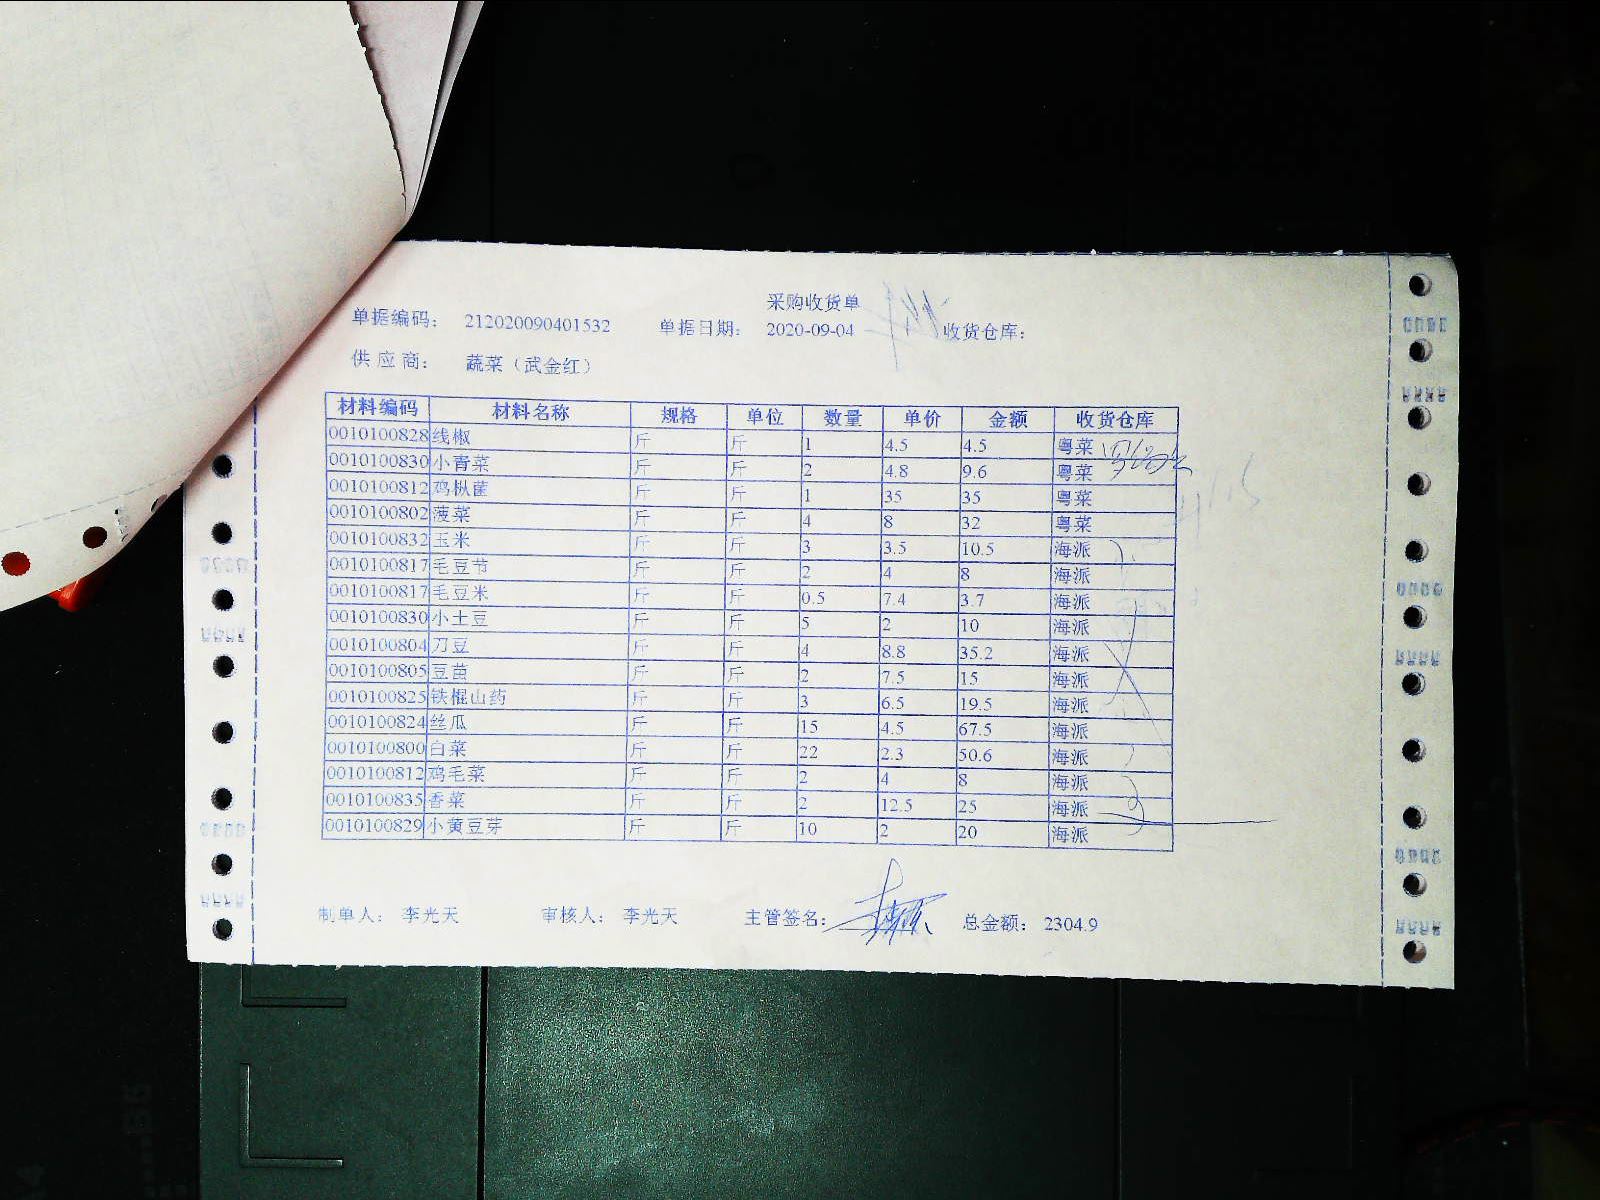 采购收货单
单据编码： 212020090401532 单据日期： 2020-09-04 收货仓库：
供 应 商： 蔬菜（武金红）
材料编码 材料名称 规格 单位 数量 单价 金额 收货仓库
0010100828 线椒 斤 斤 1 4.5 4.5 粤菜
0010100830 小青菜 斤 斤 2 4.8 9.6 粤菜
0010100812 鸡枞菌 斤 斤 1 35 35 粤菜
0010100802 菠菜 斤 斤 4 8 32 粤菜
0010100832 玉米 斤 斤 3 3.5 10.5 海派
0010100817 毛豆节 斤 斤 2 4 8 海派
0010100817 毛豆米 斤 斤 0.5 7.4 3.7 海派
0010100830 小土豆 斤 斤 5 2 10 海派
0010100804 刀豆 斤 斤 4 8.8 35.2 海派
0010100805 豆苗 斤 斤 2 7.5 15 海派
0010100825 铁棍山药 斤 斤 3 6.5 19.5 海派
0010100824 丝瓜 斤 斤 15 4.5 67.5 海派
0010100800 白菜 斤 斤 22 2.3 50.6 海派
0010100812 鸡毛菜 斤 斤 2 4 8 海派
0010100835 香菜 斤 斤 2 12.5 25 海派
0010100829 小黄豆芽 斤 斤 10 2 20 海派
制单人： 李光天 审核人： 李光天 主管签名： 总金额： 2304.9